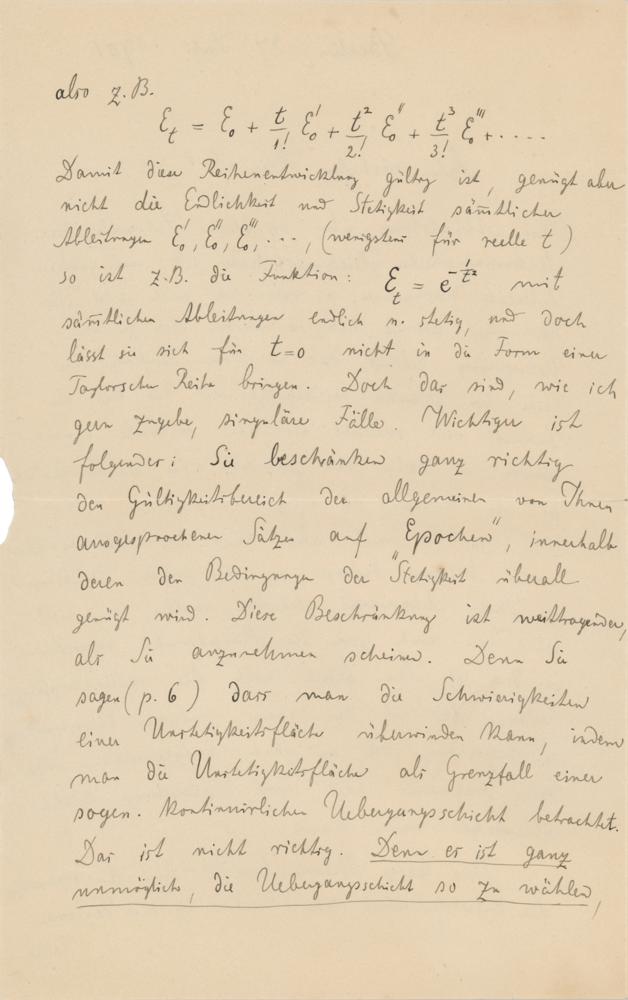 also z. B.
ℰₜ = ℰ₀ + t/1! ℰ₀' + t²/2! ℰ₀'' + t³/3! ℰ₀''' + . . . .
Damit diese Reihenentwicklung gültig ist, genügt aber
nicht die Endlichkeit und Stetigkeit säm̅tlicher
Ableitungen ℰ₀', ℰ₀'', ℰ₀''', . . . , (wenigstens für reelle t)
so ist z.B. die Funktion: ℰₜ = e^(-1/t²) mit
säm̅tlichen Ableitungen endlich u. stetig, und doch
lässt sie sich für t=0 nicht in die Form einer
Taylorschen Reihe bringen. Doch das sind, wie ich
gern zugebe, singuläre Fälle. Wichtiger ist
folgendes: Sie beschränken ganz richtig
den Gültigkeitsbereich der allgemeinen von Ihnen
ausgesprochenen Sätze auf "Epochen", innerhalb
deren den Bedingungen der Stetigkeit überall
genügt wird. Diese Beschränkung ist weittragender,
als Sie anzunehmen scheinen. Denn Sie
sagen (p. 6) dass man die Schwierigkeiten
einer Unstetigkeitsfläche überwinden kann, indem
man die Unstetigkeitsfläche als Grenzfall einer
sogen. kontinuirlichen Uebergangsschicht betrachtet.
Das ist nicht richtig. Denn es ist ganz
unmöglich, die Uebergangsschicht so zu wählen,